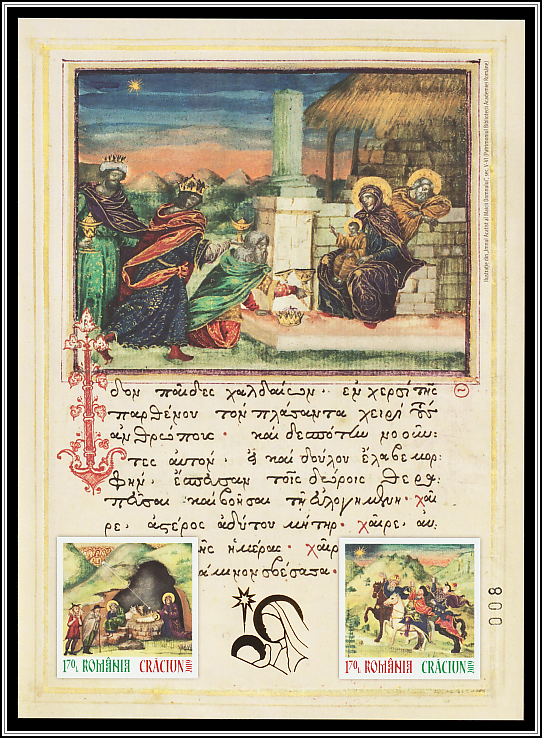 Ilustrație din „Imnul Acatist al Maicii Domnului”, sec. V-VI (Patrimoniul Bibliotecii Academiei Române)
Ἴδον παῖδες χαλδαίων· ἐν χερσὶ τῆς
παρθένου τὸν πλάσαντα χειρὶ τοὺς
ἀνθρώπους· καὶ δεσπότην νοοῦν-
τες αὐτόν· εἰ καὶ δούλου ἔλαβε μορ-
φήν· ἔσπευσαν τοῖς δώροις θερα-
πεῦσαι καὶ βοῆσαι τῇ εὐλογημένῃ· χαῖ-
ρε· ἀστέρος ἀδύτου μήτηρ· χαῖρε· αὐ-
ῆς ἡμέρας· χαῖρ
άμινον σβέσασα·
1.70 L ROMÂNIA CRĂCIUN 2019
1.70 L ROMÂNIA CRĂCIUN 2019
008